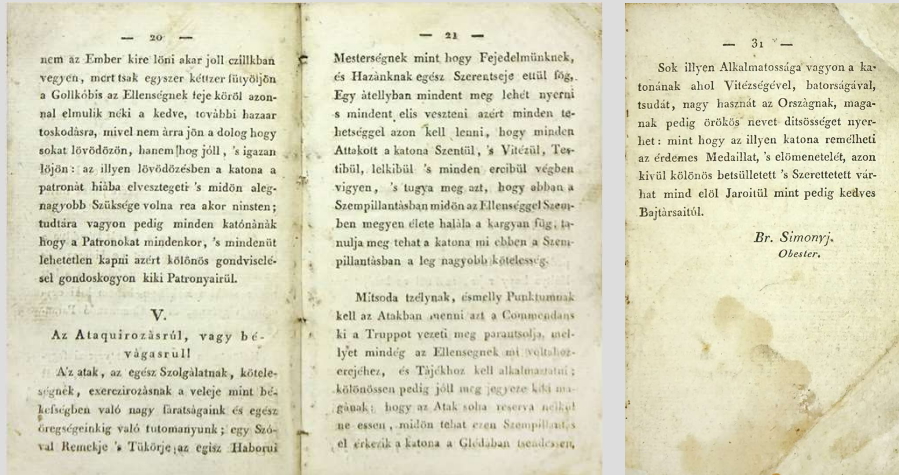 — 20 —
nem az Ember kire lőni akar joll czillkban
vegyen, mert tsak egyszer kétlzer fütyöljön
a Gollkóbis az Ellenségnek feje köröl azon-
nal elmulik néki a kedve, további hazaar
toskodásra, mivel nem àrra jön a dolog hogy
sokat lövödözön, hanem hog jóll, 's igazan
löjön: az illyen lövödözésben a katona a
patronát hiàba elvesztegeti 's midön aleg-
nagyobb Szüksége volna rea akor ninsten;
tudtára vagyon pedig minden katónànàk
hogy a Patronokat mindenkor, 's mindenüt
lehetetlen kapni azért kölönös gondviselé-
sel gondoskogyon kiki Patronyairül.
V.
Az Ataquirozàsrúl, vagy bé-
vàgasrúl!
A'z atak, az egész Szolgàlatnak, kötele-
ségnek, exerczirozàsnak a veleje mint bé-
kességben való nagy fàratságaink és egész
öregségeinkig való tutomanyunk; egy Szó-
val Remekje 's Tükörje az egisz Haborui
— 21 —
Mesterségnek mint hogy Fejedelmünknek,
és Hazànknak egész Szerentseje ettül fög,
Egy àtellyban mindent meg lehét nyerni
s mindent elis veszteni azért minden te-
hetséggel azon kell lenni, hogy minden
Attakott a katona Szentül, 's Vitézül, Tes-
tibül, lelkibül 's minden ercibül végben
vigyen, 's tugya meg azt, hogy abban a
Szempillantàsban midön az Ellenséggel Szem-
ben megyen élete halàla a kargyan fög, ta-
nulja meg tehat a katona mi ebben a Szem-
pillantàsban a leg nagyobb kötelesség.
Mitsoda tzélynak, ésmelly Punktumnak
kell az Atakban menni azt a Commendans
ki a Truppot vezeti meg parantsolja, mel-
lyet mindég az Ellensegnek mi voltahoz-
erejéhez, és Tàjékhoz kell alkalmastatni;
kölönössen pedig jóll meg jegyeze kiki ma-
gànak: hogy az Atak soha reserva nélkül
ne essen, midön tehat ezen Szempillant,s
el érkezik a katona a Glédàban tsendesen,
— 31 —
Sok illyen Alkalmatossàga vagyon a ka-
tonànak ahol Vitézségével, batorságával,
tsudàt, nagy hasznàt az Orszàgnak, maga-
nak pedig örökös nevet ditsösséget nyer-
het: mint hogy az illyen katona remélheti
az érdemes Medaillat, 's elömenetelét, azon
kivül kölönös betsülletett 's Szerettetett vár-
hat mind elöl Jaroitúl mint pedig kedves
Bajtàrsaitúl.
Br. Simonyj.
Obester.